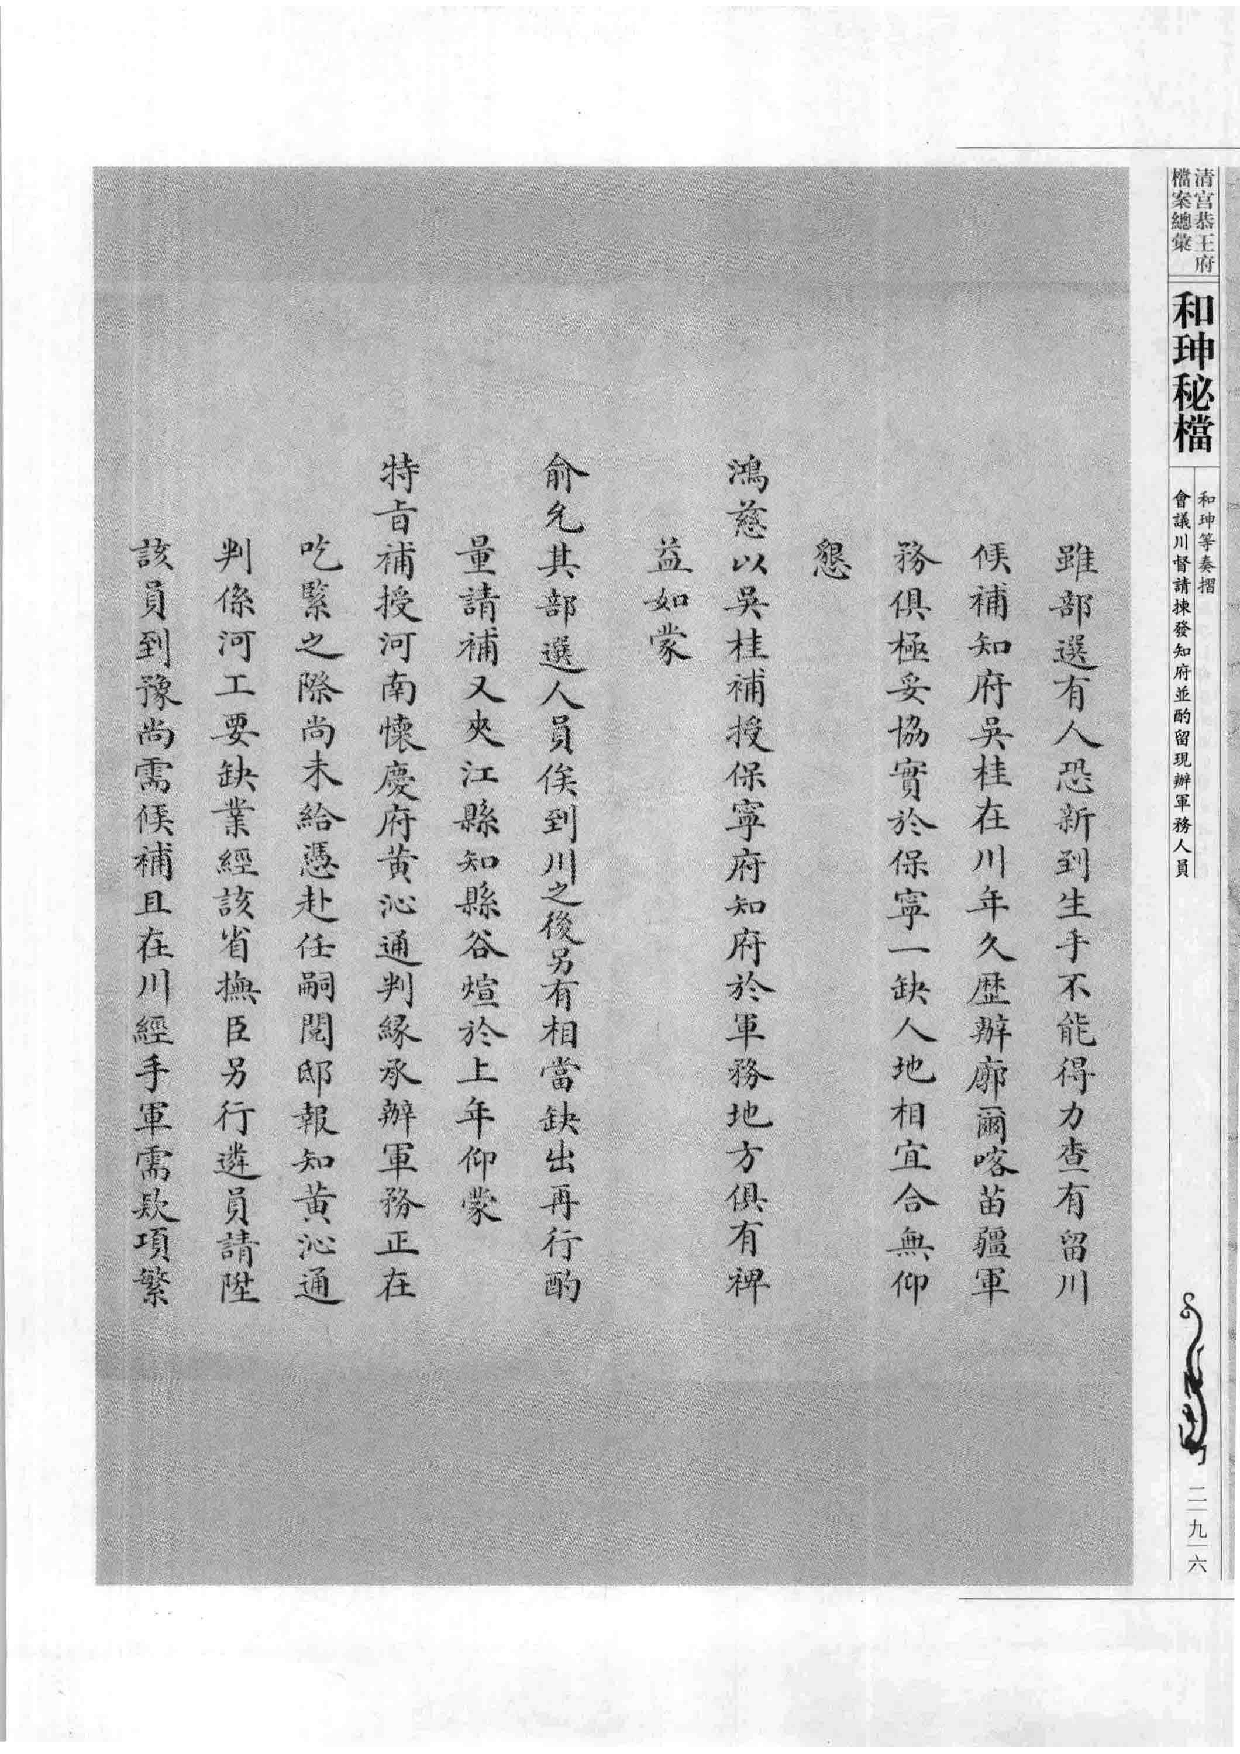 清宮恭王府
檔案總彙
和珅秘檔
和珅等奏摺
會議川督請揀發知府並酌留現辦軍務人員
二九六
雖部選有人恐新到生手不能得力查有留川
候補知府吳桂在川年久歷辦廓爾喀苗疆軍
務俱極妥協實於保寧一缺人地相宜合無仰
懇
鴻慈以吳桂補授保寧府知府於軍務地方俱有裨
益如蒙
俞允其部選人員俟到川之後另有相當缺出再行酌
量請補又夾江縣知縣谷煊於上年仰蒙
特旨補授河南懷慶府黃沁通判緣承辦軍務正在
吃緊之際尚未給憑赴任嗣閱邸報知黃沁通
判係河工要缺業經該省撫臣另行遴員請陞
該員到豫尚需候補且在川經手軍需款項繁